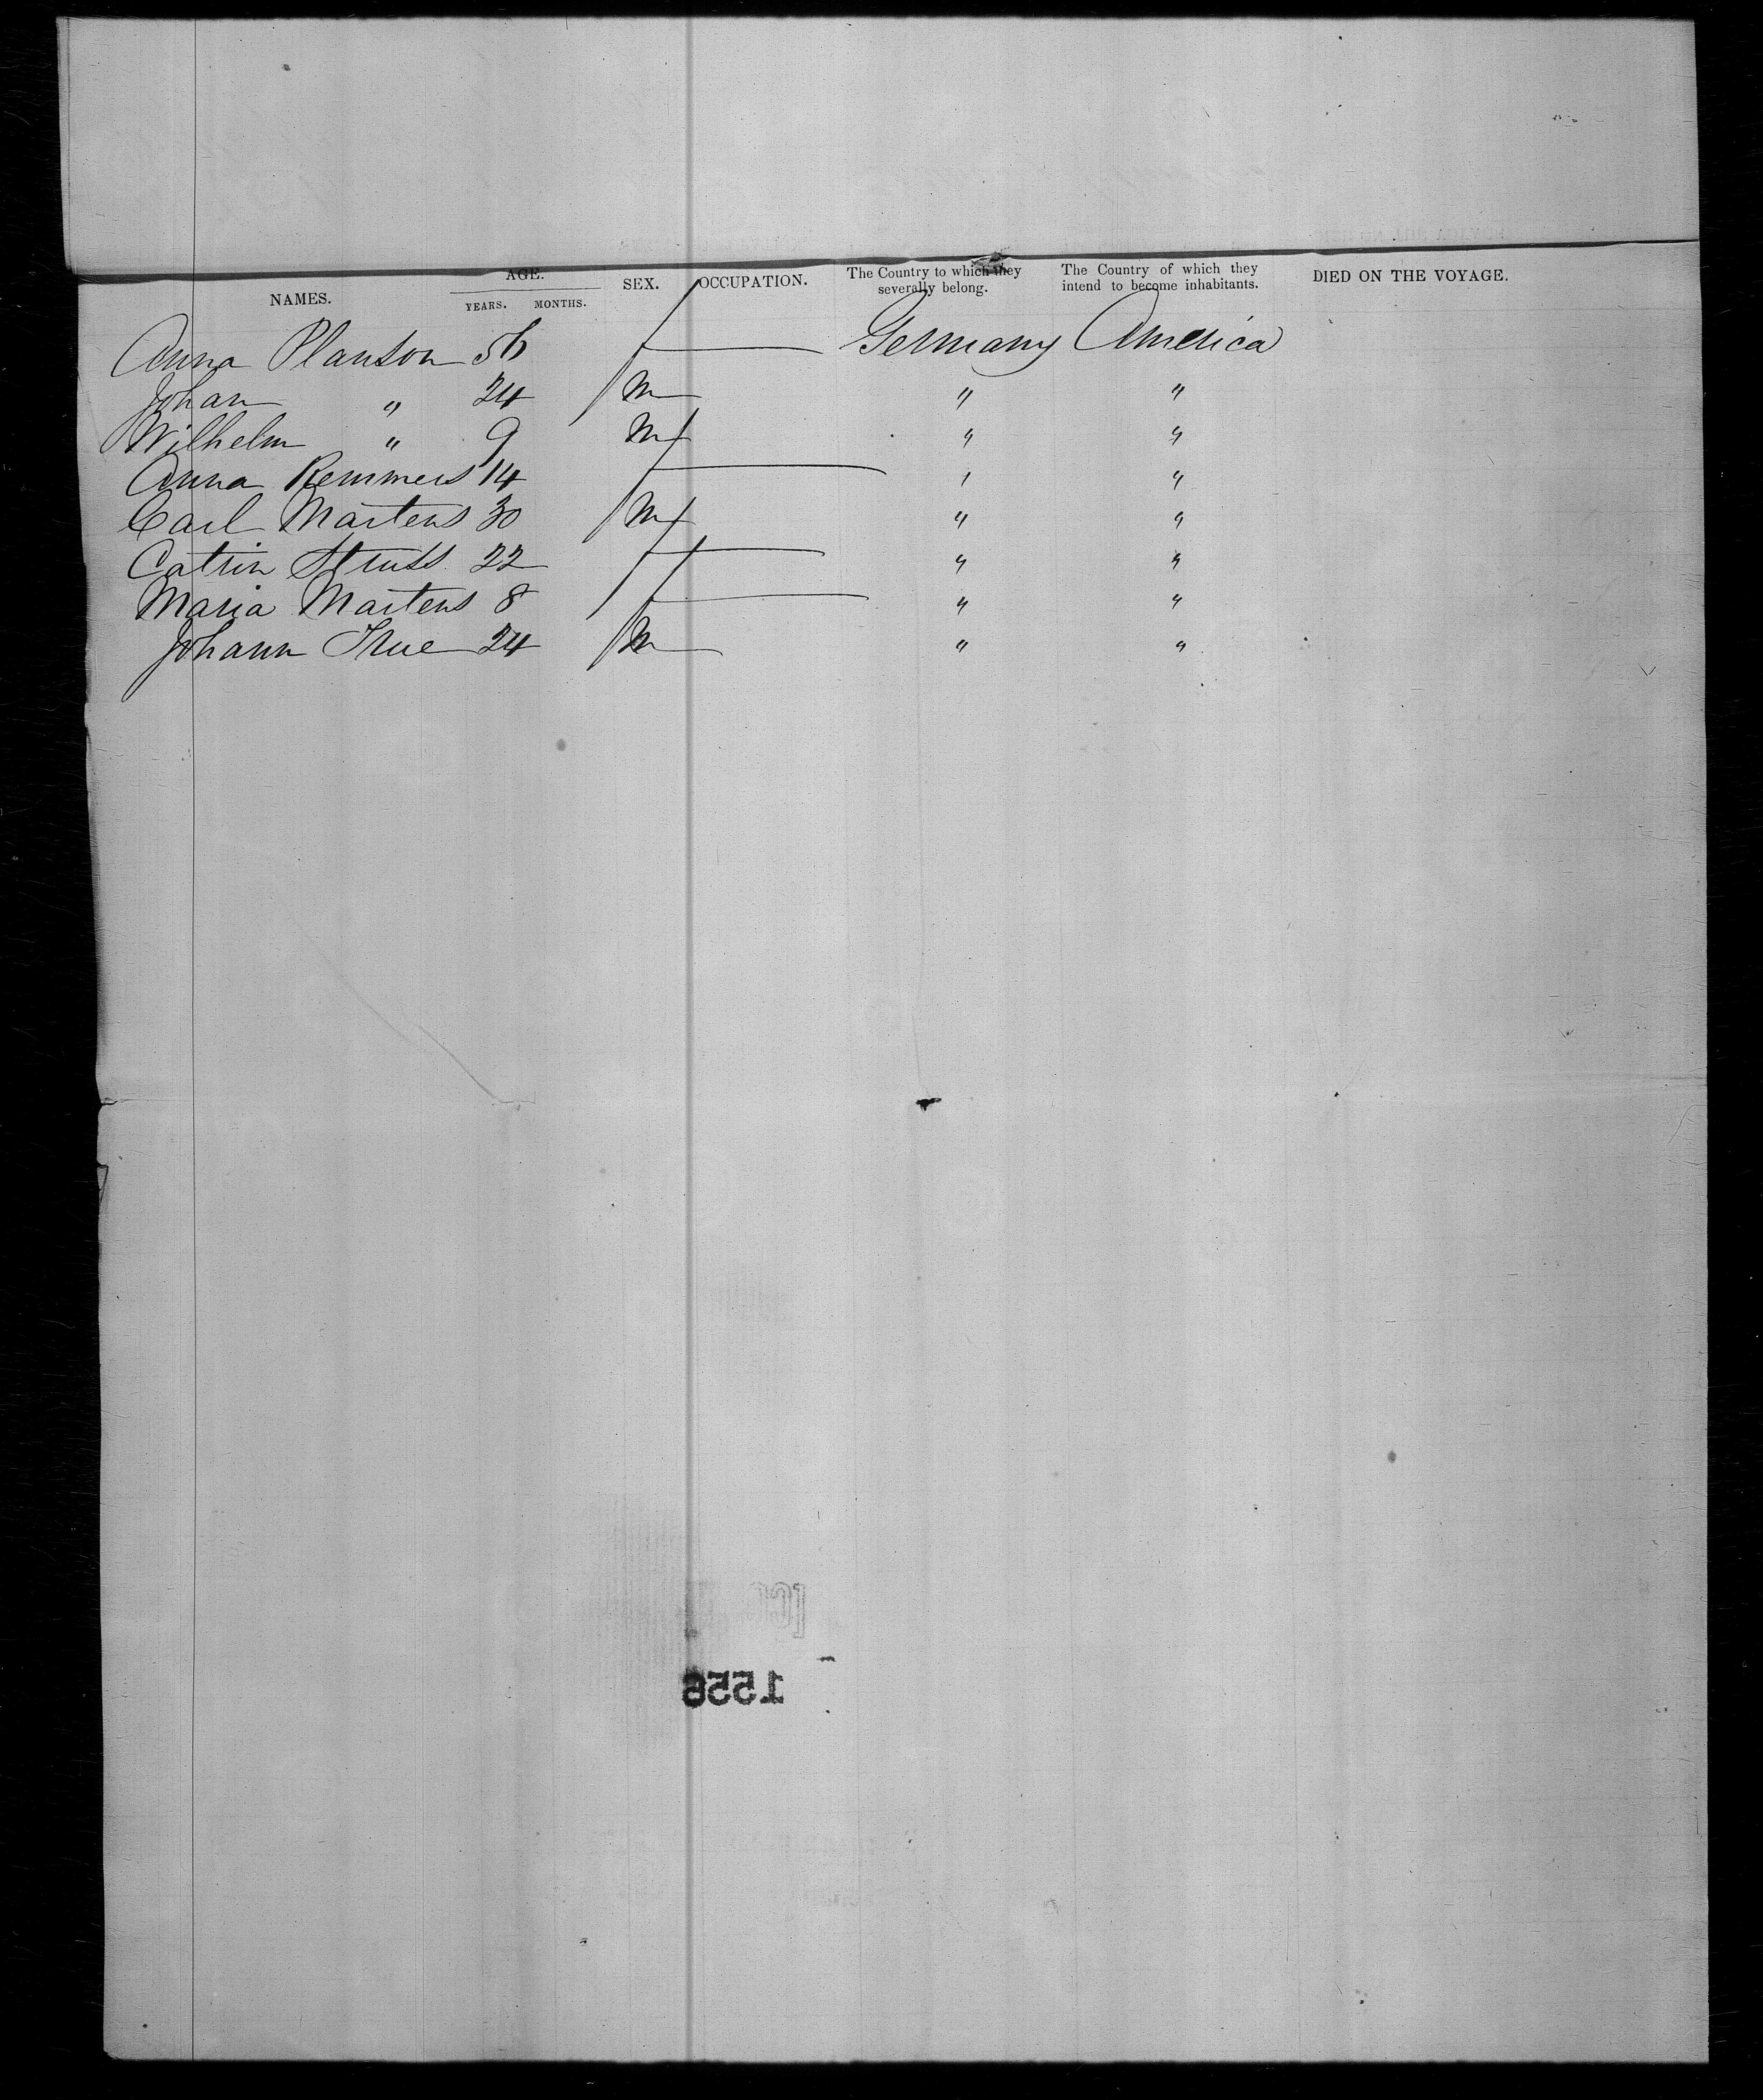 NAMES. AGE. YEARS. MONTHS. SEX. OCCUPATION. The Country to which they severally belong. The Country of which they intend to become inhabitants. DIED ON THE VOYAGE.
Anna Planson 56 f Germany America
Johan " 24 m " "
Wilhelm " 9 m " "
Anna Remmers 14 f " "
Carl Martens 30 m " "
Catrin 22 f " "
Maria Martens 8 f " "
Johann 24 m " "
1556